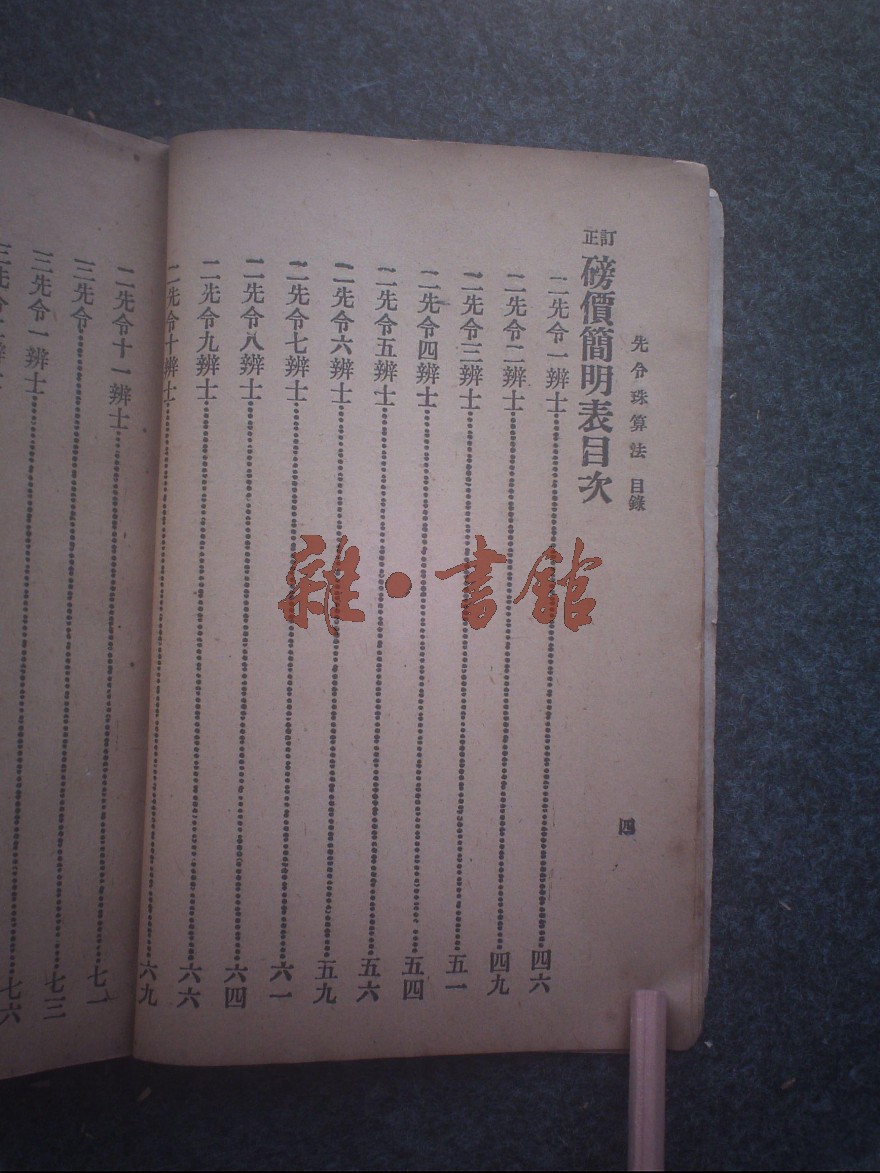 先令珠算法 目錄
四
訂正
磅價簡明表目次
二先令一辨士 四六
二先令二辨士 四九
二先令三辨士 五一
二先令四辨士 五四
二先令五辨士 五六
二先令六辨士 五九
二先令七辨士 六一
二先令八辨士 六四
二先令九辨士 六六
二先令十辨士 六九
二先令十一辨士 七一
三先令 七三
三先令一辨士 七六
雜·書館